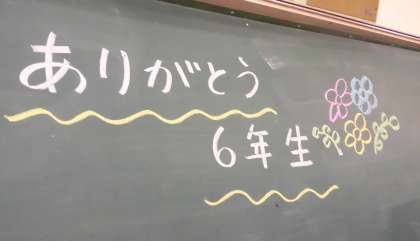 ありがとう
6年生